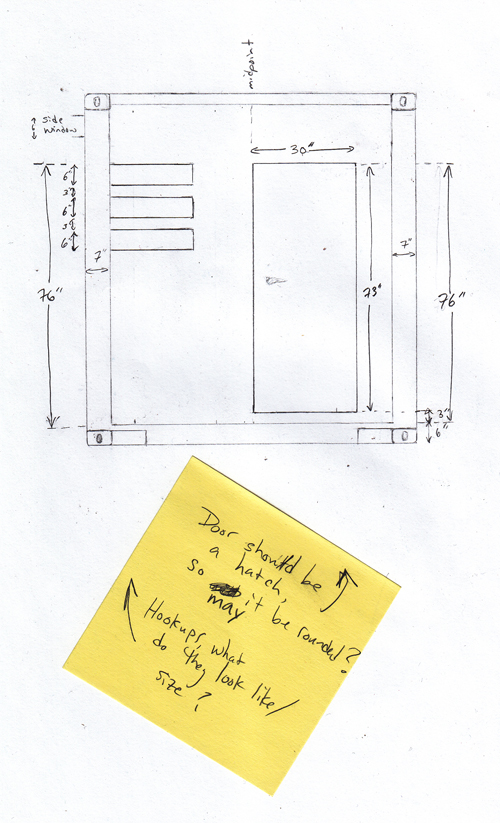 midpoint
side
window
30"
6"
3"
6"
3"
6"
7"
7"
76"
73"
76"
3"
6"
Door should be
a hatch,
so may it be rounded?
Hookups, what
do they look like/
size?